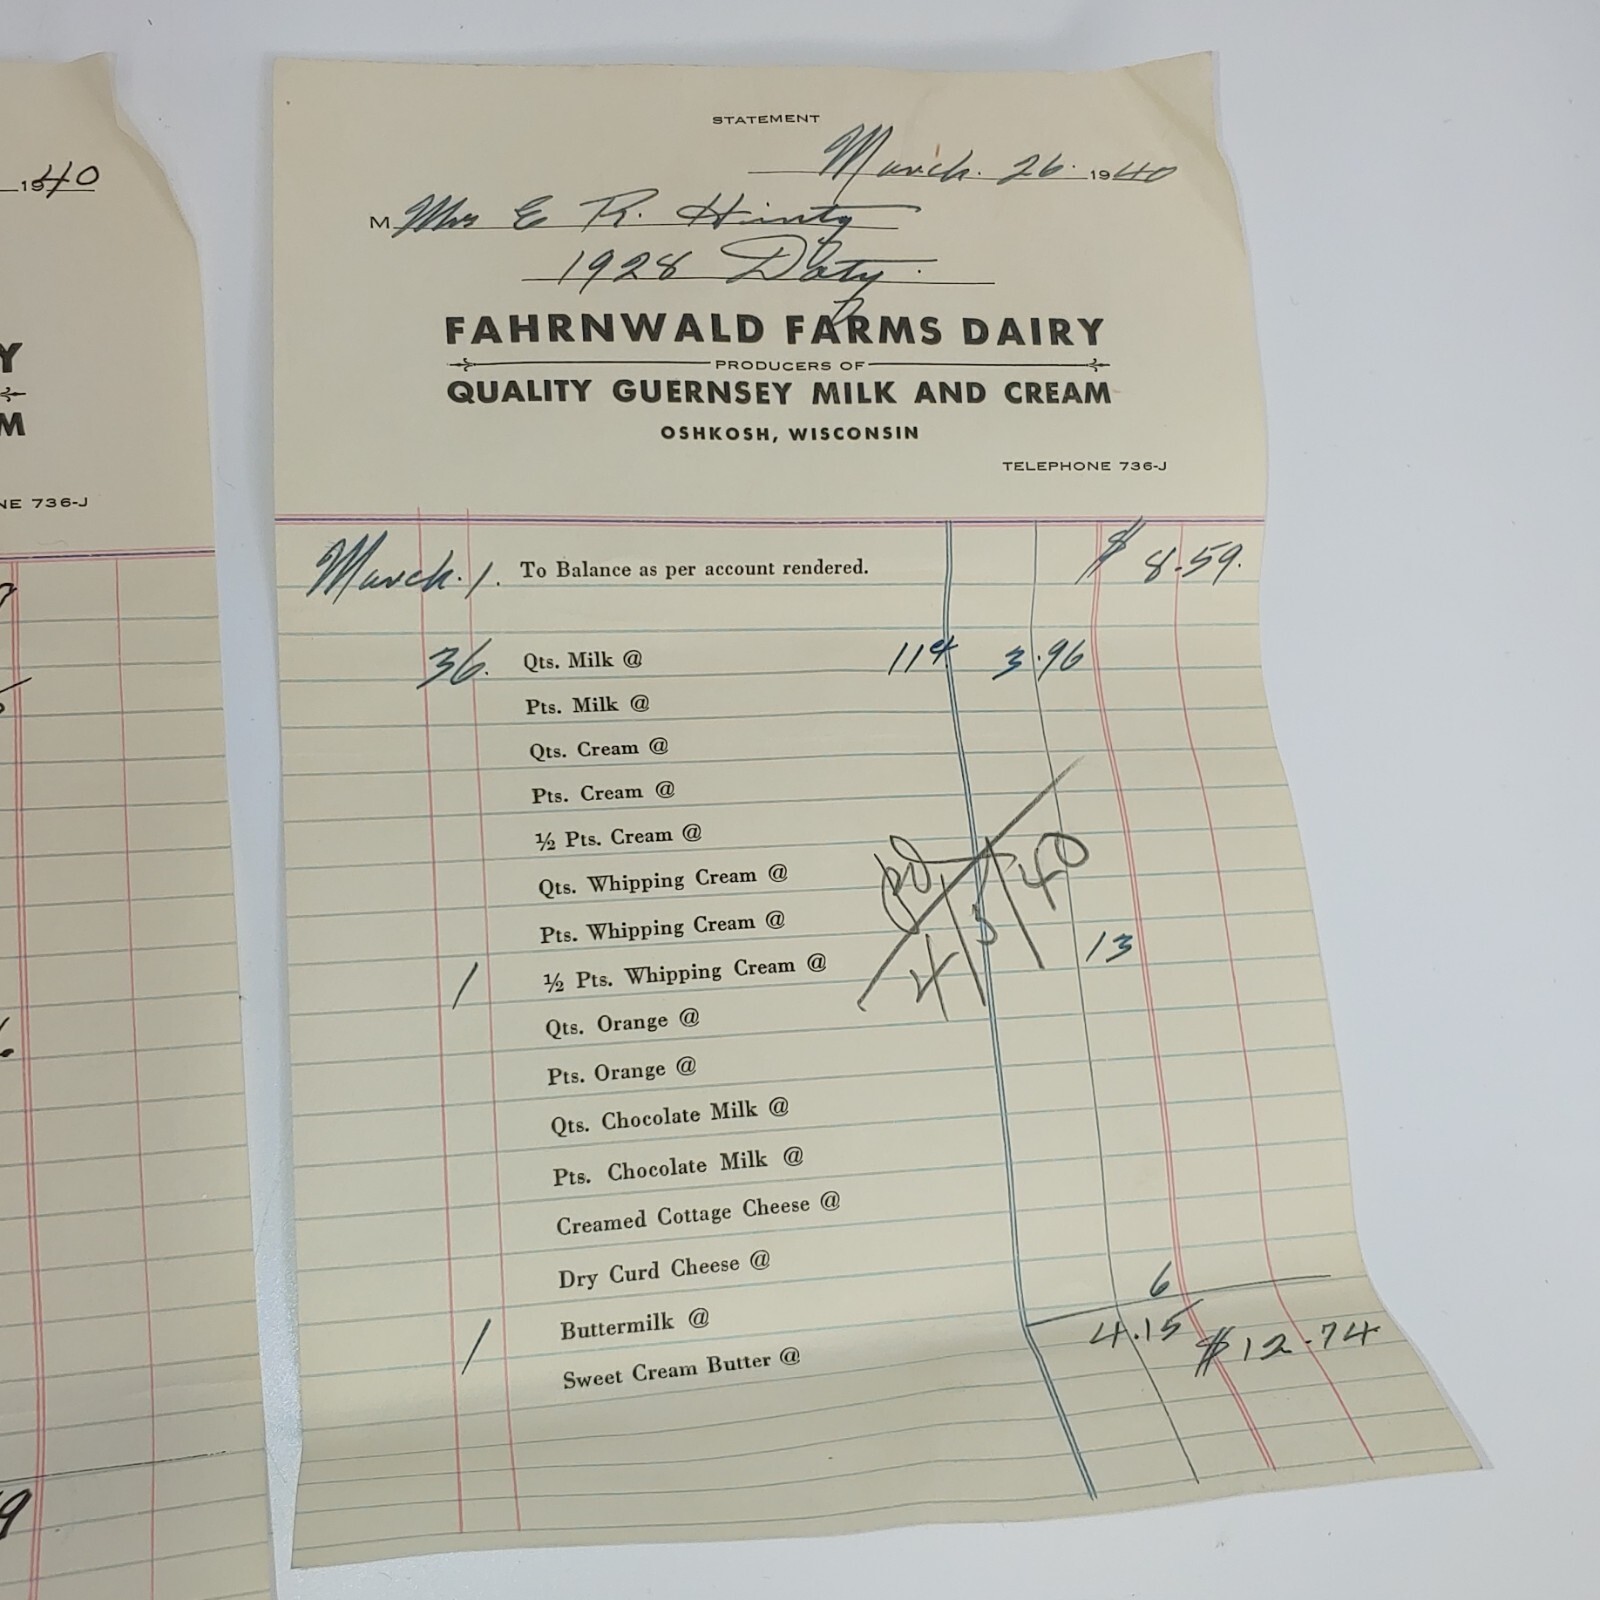 1940
Y
M
NE 736-J
STATEMENT
March. 26. 1940
M Mrs E R. Hintz
1928 Doty.
FAHRNWALD FARMS DAIRY
PRODUCERS OF
QUALITY GUERNSEY MILK AND CREAM
OSHKOSH, WISCONSIN
TELEPHONE 736-J
March. 1. To Balance as per account rendered. $ 8.59.
36. Qts. Milk @ 11¢ 3.96
Pts. Milk @
Qts. Cream @
Pts. Cream @
½ Pts. Cream @
Qts. Whipping Cream @
Pts. Whipping Cream @
1 ½ Pts. Whipping Cream @ 13
Pd 4/3/40
Qts. Orange @
Pts. Orange @
Qts. Chocolate Milk @
Pts. Chocolate Milk @
Creamed Cottage Cheese @
Dry Curd Cheese @
1 Buttermilk @ 6
Sweet Cream Butter @ 4.15 $12.74